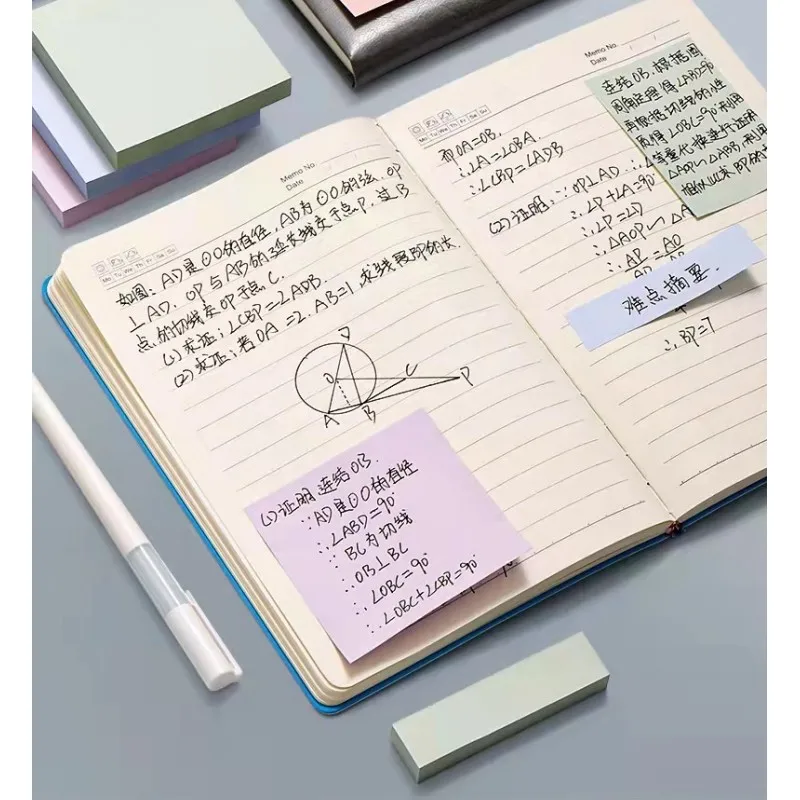 Memo No.
Date
Mo Tu We Th Fr Sa Su
如图：AD是⊙O的直径，AB为⊙O的弦，OP
⊥AD，OP与AB的延长线交于点P，过B
点的切线交OP于点C.
(1)求证：∠CBP=∠ADB
(2)求证：若OA=2，AB=1，求线段BP的长.
D
O
C
P
A B
(1)证明 连结OB.
∵AD是⊙O的直径
∴∠ABD=90°
∵BC为切线
∴OB⊥BC
∴∠OBC=90°
∴∠OBC+∠CBP=90°
Memo No.
Date
Mo Tu We Th Fr Sa Su
而OA=OB.
∴∠A=∠OBA.
∴∠CBP=∠ADB
(2)证明：∵OP⊥AD
∴∠P+∠A=90°
∴∠P=∠D
∴△AOP∽△A
∴AP=AO
∴BP=7
连结OB，根据圆
周角定理得∠ABD=90°
再根据切线的性
质得∠OBC=90°利用
等量代换进行证明
△AOP∽△ABD，利用
相似比求BP的
难点摘要.